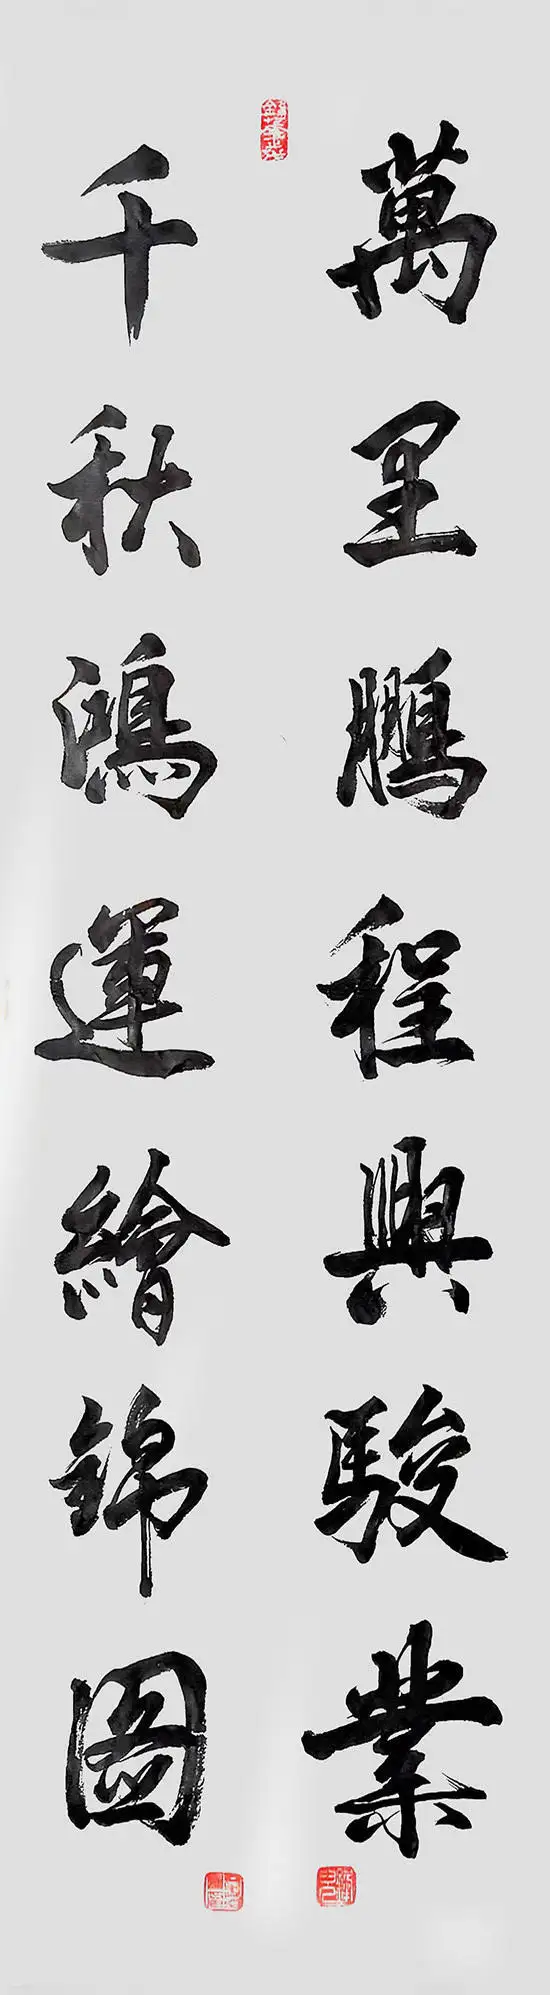 萬里鵬程興駿業
千秋鴻運繪錦圖